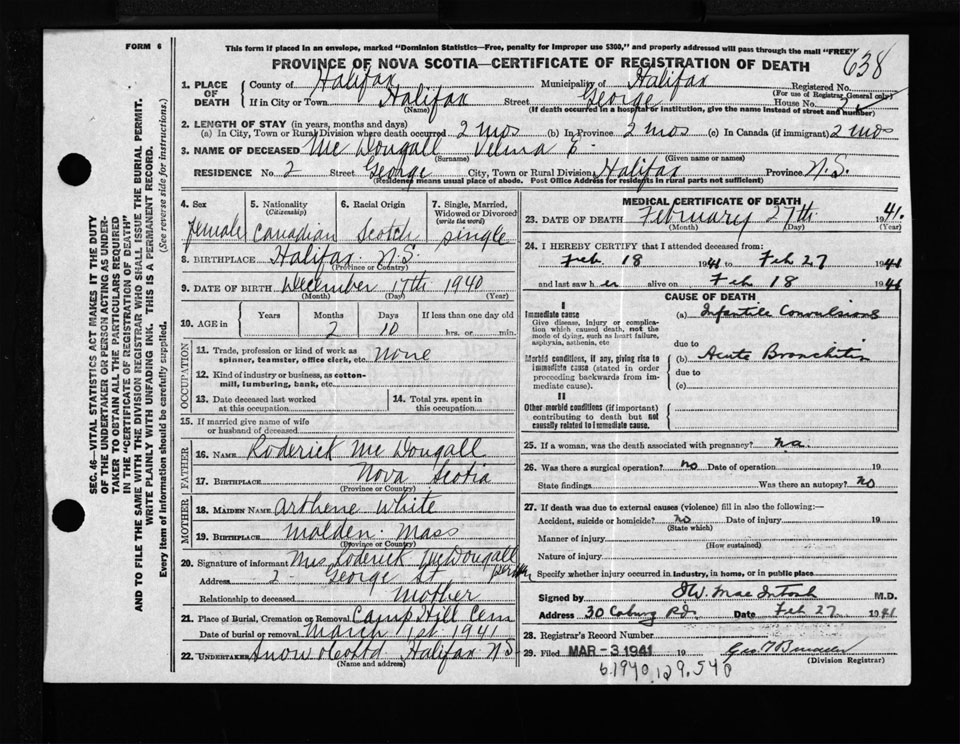 FORM 6
This form if placed in an envelope, marked "Dominion Statistics—Free, penalty for improper use $300," and properly addressed will pass through the mail "FREE"
PROVINCE OF NOVA SCOTIA—CERTIFICATE OF REGISTRATION OF DEATH
638
SEC. 46—VITAL STATISTICS ACT MAKES IT THE DUTY
OF THE UNDERTAKER OR PERSON ACTING AS UNDER-
TAKER TO OBTAIN ALL THE PARTICULARS REQUIRED
IN THE "CERTIFICATE OF REGISTRATION OF DEATH"
AND TO FILE THE SAME WITH THE DIVISION REGISTRAR WHO SHALL ISSUE THE BURIAL PERMIT.
WRITE PLAINLY WITH UNFADING INK. THIS IS A PERMANENT RECORD.
Every item of information should be carefully supplied. (See reverse side for instructions.)
1. PLACE OF DEATH
County of Halifax Municipality of Halifax Registered No.
(For use of Registrar General only)
If in City or Town Halifax Street George House No. 2
(Name) (If death occurred in a hospital or institution, give the name instead of street and number)
2. LENGTH OF STAY (in years, months and days)
(a) In City, Town or Rural Division where death occurred 2 mos (b) In Province 2 mos (c) In Canada (if immigrant) 2 mos
3. NAME OF DECEASED Mc Dougall Velma E.
(Surname) (Given name or names)
RESIDENCE No. 2 Street George City, Town or Rural Division Halifax Province N.S.
(Residence means usual place of abode. Post Office Address for residents in rural parts not sufficient)
4. Sex 5. Nationality (Citizenship) 6. Racial Origin 7. Single, Married, Widowed or Divorced (write the word)
female Canadian Scotch single
8. BIRTHPLACE Halifax N.S.
(Province or Country)
9. DATE OF BIRTH December 17th 1940
(Month) (Day) (Year)
10. AGE in Years Months Days If less than one day old
2 10 hrs. or min.
OCCUPATION
11. Trade, profession or kind of work as spinner, teamster, office clerk, etc. none
12. Kind of industry or business, as cotton-mill, lumbering, bank, etc.
13. Date deceased last worked at this occupation
14. Total yrs. spent in this occupation
15. If married give name of wife or husband of deceased
FATHER
16. NAME Roderick Mc Dougall
17. BIRTHPLACE Nova Scotia
(Province or Country)
MOTHER
18. MAIDEN NAME Arthene White
19. BIRTHPLACE Malden Mass
(Province or Country)
20. Signature of informant Mrs Roderick McDougall
Address 2 George St.
Relationship to deceased mother
21. Place of Burial, Cremation or Removal Camp Hill Cem
Date of burial or removal March 1st 1941
22. UNDERTAKER Snow & Co Ltd Halifax N.S.
(Name and address)
MEDICAL CERTIFICATE OF DEATH
23. DATE OF DEATH February 27th 1941.
(Month) (Day) (Year)
24. I HEREBY CERTIFY that I attended deceased from:
Feb 18 1941 to Feb 27 1941
and last saw her alive on Feb 18 1941
CAUSE OF DEATH
I
Immediate cause
Give disease, injury or complication which caused death, not the mode of dying, such as heart failure, asphyxia, asthenia, etc
(a) Infantile Convulsions
due to
Morbid conditions, if any, giving rise to immediate cause (stated in order proceeding backwards from immediate cause).
(b) Acute Bronchitis
due to
(c)
II
Other morbid conditions (if important) contributing to death but not causally related to immediate cause.
25. If a woman, was the death associated with pregnancy? no.
26. Was there a surgical operation? no Date of operation 19
State findings Was there an autopsy? no
27. If death was due to external causes (violence) fill in also the following:—
Accident, suicide or homicide? no Date of injury 19
(State which)
Manner of injury
(How sustained)
Nature of injury
Specify whether injury occurred in industry, in home, or in public place
Signed by W. MacIntosh M.D.
Address 30 Coburg Rd. Date Feb 27 1941
28. Registrar's Record Number
29. Filed MAR - 3 1941
(Division Registrar)
6.1940.129.540